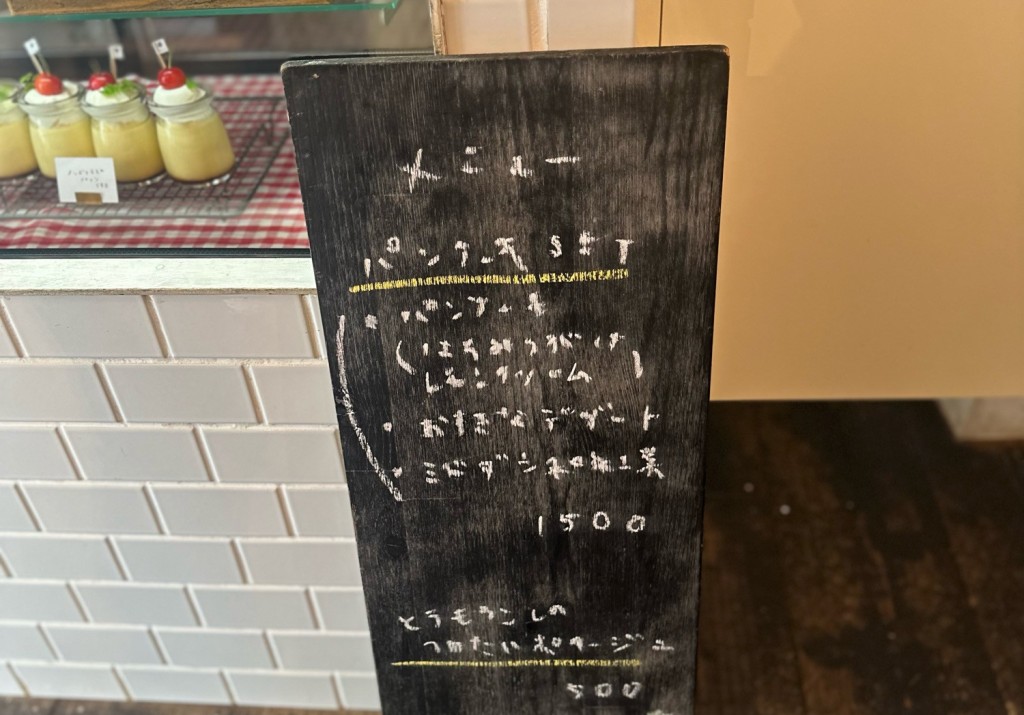 メニュー
パンケーキ SET
・パンケーキ
(はちみつがけ
レモンクリーム)
・おすきなデザート
1500
とうもろこしの
つめたいポタージュ
500